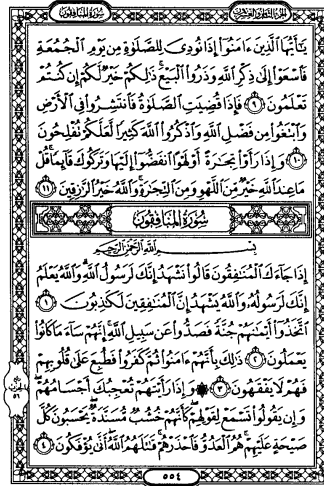 سُورَةُ المُنَافِقُون
يَٰٓأَيُّهَا ٱلَّذِينَ ءَامَنُوٓا۟ إِذَا نُودِىَ لِلصَّلَوٰةِ مِن يَوْمِ ٱلْجُمُعَةِ
فَٱسْعَوْا۟ إِلَىٰ ذِكْرِ ٱللَّهِ وَذَرُوا۟ ٱلْبَيْعَ ۚ ذَٰلِكُمْ خَيْرٌ لَّكُمْ إِن كُنتُمْ
تَعْلَمُونَ ٩ فَإِذَا قُضِيَتِ ٱلصَّلَوٰةُ فَٱنتَشِرُوا۟ فِى ٱلْأَرْضِ
وَٱبْتَغُوا۟ مِن فَضْلِ ٱللَّهِ وَٱذْكُرُوا۟ ٱللَّهَ كَثِيرًا لَّعَلَّكُمْ تُفْلِحُونَ
١٠ وَإِذَا رَأَوْا۟ تِجَٰرَةً أَوْ لَهْوًا ٱنفَضُّوٓا۟ إِلَيْهَا وَتَرَكُوكَ قَآئِمًا ۚ قُلْ
مَا عِندَ ٱللَّهِ خَيْرٌ مِّنَ ٱللَّهْوِ وَمِنَ ٱلتِّجَٰرَةِ ۚ وَٱللَّهُ خَيْرُ ٱلرَّٰزِقِينَ ١١
سُورَةُ المُنَافِقُون
بِسْمِ ٱللَّهِ ٱلرَّحْمَٰنِ ٱلرَّحِيمِ
إِذَا جَآءَكَ ٱلْمُنَٰفِقُونَ قَالُوا۟ نَشْهَدُ إِنَّكَ لَرَسُولُ ٱللَّهِ ۗ وَٱللَّهُ يَعْلَمُ
إِنَّكَ لَرَسُولُهُۥ وَٱللَّهُ يَشْهَدُ إِنَّ ٱلْمُنَٰفِقِينَ لَكَٰذِبُونَ ١
ٱتَّخَذُوٓا۟ أَيْمَٰنَهُمْ جُنَّةً فَصَدُّوا۟ عَن سَبِيلِ ٱللَّهِ ۚ إِنَّهُمْ سَآءَ مَا كَانُوا۟
يَعْمَلُونَ ٢ ذَٰلِكَ بِأَنَّهُمْ ءَامَنُوا۟ ثُمَّ كَفَرُوا۟ فَطُبِعَ عَلَىٰ قُلُوبِهِمْ
فَهُمْ لَا يَفْقَهُونَ ٣ ۞ وَإِذَا رَأَيْتَهُمْ تُعْجِبُكَ أَجْسَامُهُمْ ۖ
وَإِن يَقُولُوا۟ تَسْمَعْ لِقَوْلِهِمْ ۖ كَأَنَّهُمْ خُشُبٌ مُّسَنَّدَةٌ ۖ يَحْسَبُونَ كُلَّ
صَيْحَةٍ عَلَيْهِمْ ۚ هُمُ ٱلْعَدُوُّ فَٱحْذَرْهُمْ ۚ قَٰتَلَهُمُ ٱللَّهُ ۖ أَنَّىٰ يُؤْفَكُونَ ٤
٥٥٤